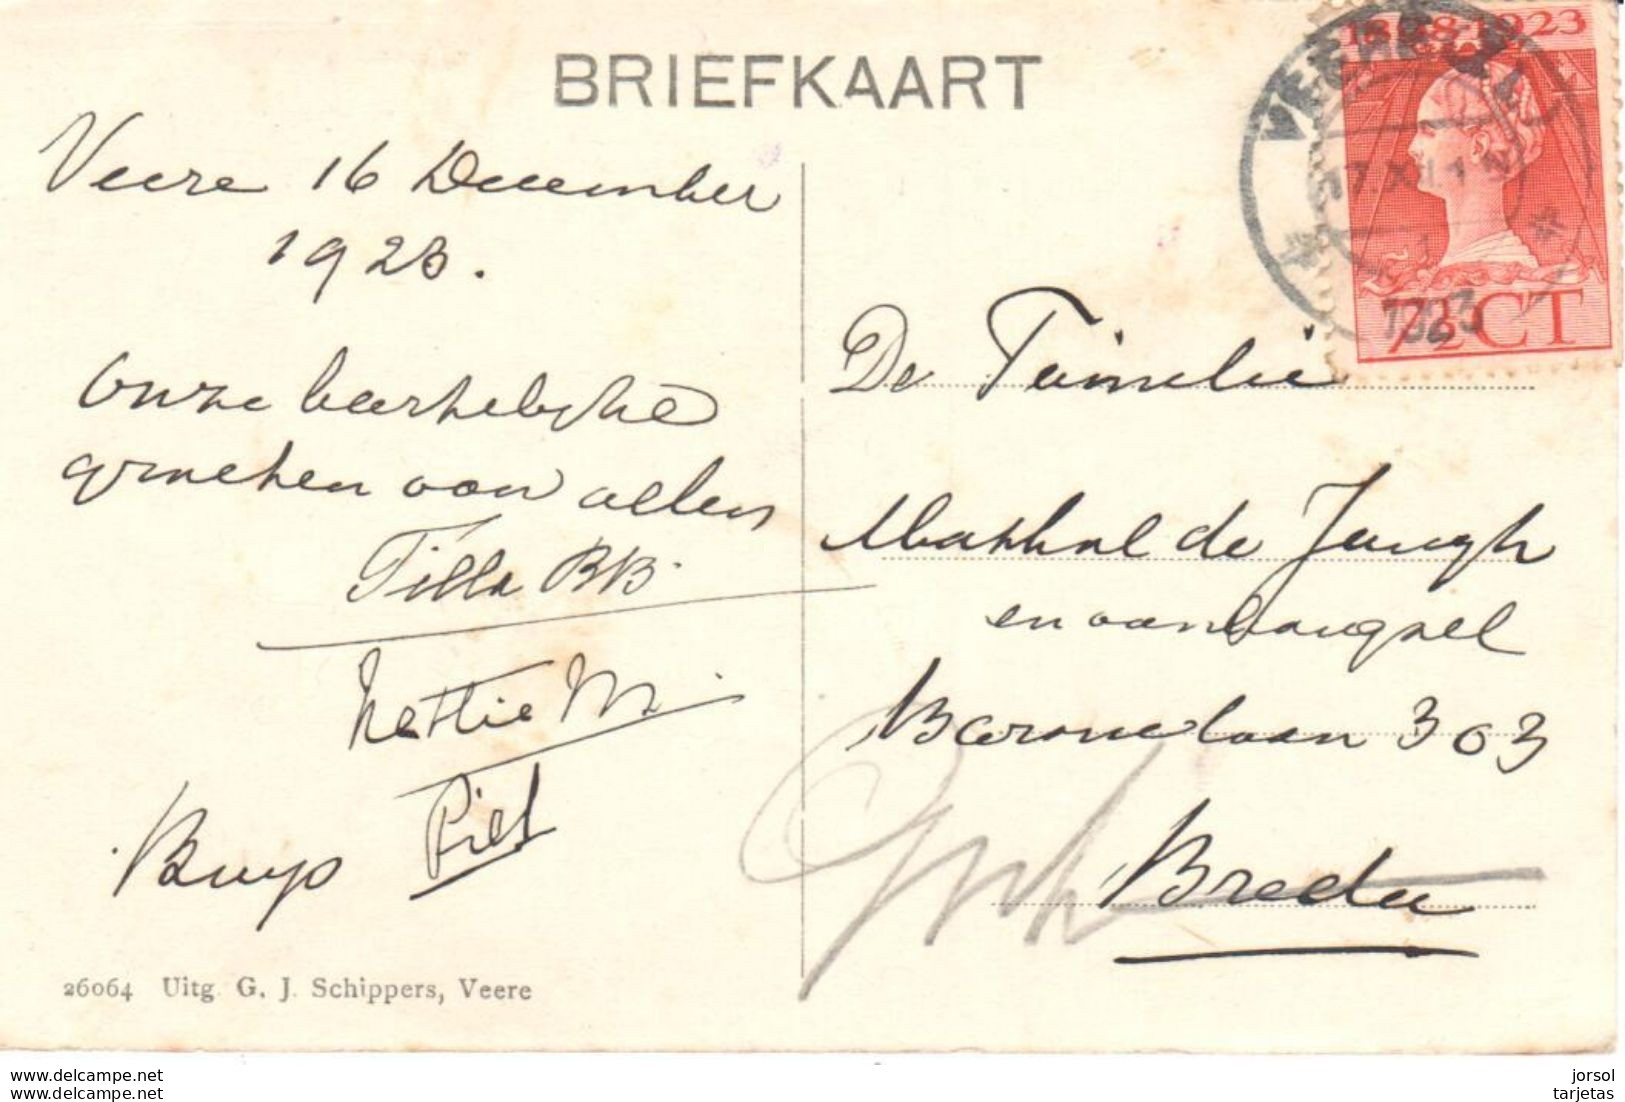 BRIEFKAART
1898-1923
VEERE
17 XII 1 N
1923
7½ CT
Veere 16 December
1923.
Onze hartelijke
groeten van allen
Tilla BB.
Nettie M.
Piet
Buys
De Familie
de Jongh
en aanhangsel
Baronielaan 303
Breda
26064 Uitg. G. J. Schippers, Veere
www.delcampe.net
www.delcampe.net
jorsol
tarjetas